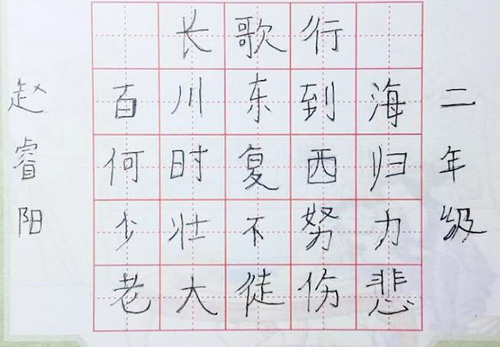 长歌行
百川东到海
何时复西归
少壮不努力
老大徒伤悲
二年级
赵睿阳